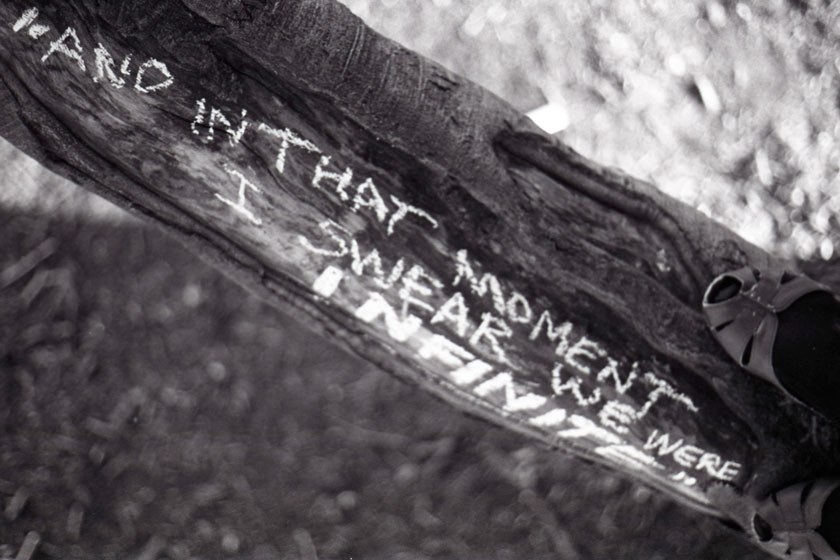 "AND IN THAT MOMENT
I SWEAR WE WERE
INFINITE"